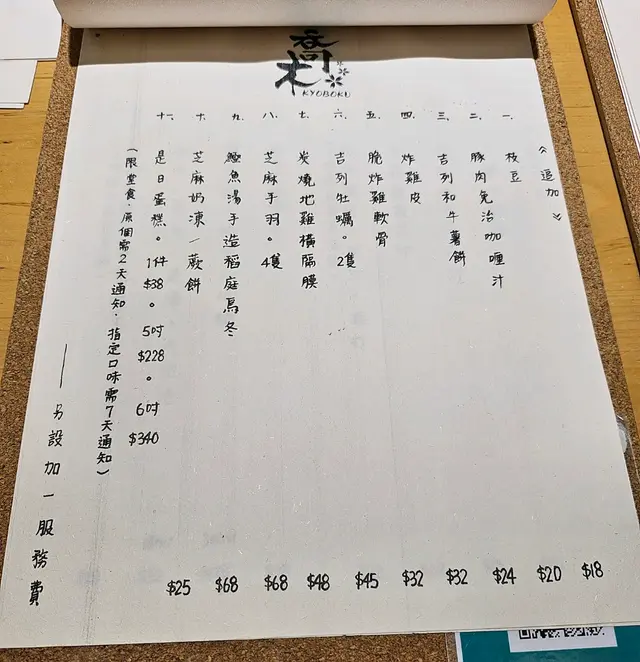 喬木
KYOBOKU
《追加》
一. 枝豆 $18
二. 豚肉免治咖喱汁 $20
三. 吉列和牛薯餅 $24
四. 炸雞皮 $32
五. 脆炸雞軟骨 $32
六. 吉列牡蠣。2隻 $45
七. 炭燒地雞橫隔膜 $48
八. 芝麻手羽。4隻 $68
九. 鱷魚湯手造稻庭烏冬 $68
十. 芝麻奶凍/蕨餅 $25
十一. 是日蛋糕。1件$38。5吋$228。6吋$340
(限堂食.原個需2天通知.指定口味需7天通知)
——另設加一服務費